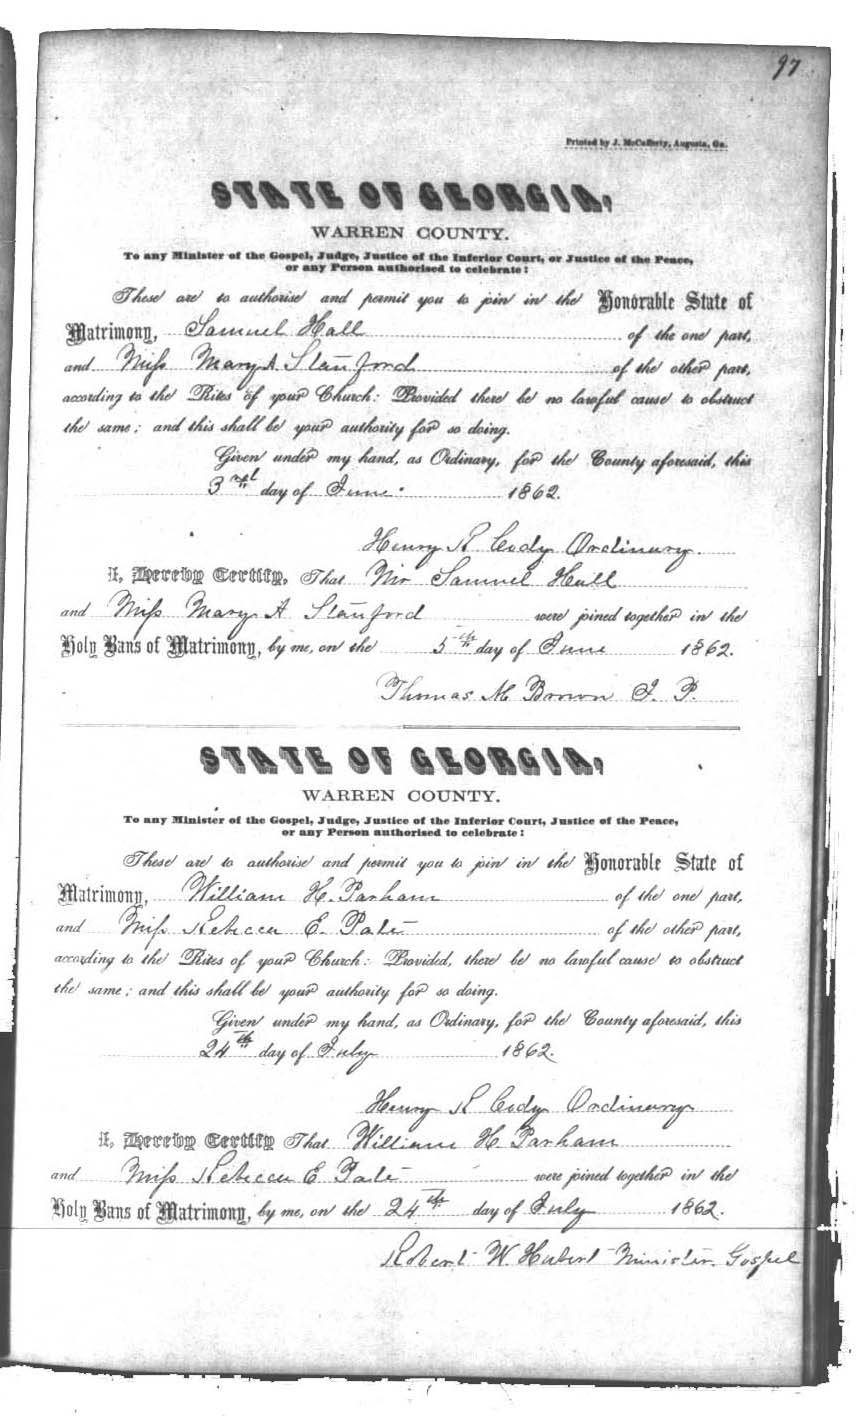 97
Printed by J. McCafferty, Augusta, Ga.
STATE OF GEORGIA,
WARREN COUNTY.
To any Minister of the Gospel, Judge, Justice of the Inferior Court, or Justice of the Peace,
or any Person authorised to celebrate:
These are to authorise and permit you to join in the Honorable State of
Matrimony, Samuel Hall of the one part,
and Miss Mary A Stanford of the other part,
according to the Rites of your Church: Provided there be no lawful cause to obstruct
the same; and this shall be your authority for so doing.
Given under my hand, as Ordinary, for the County aforesaid, this
3rd day of June 1862.
Henry R Cody Ordinary.
I, Hereby Certify, That Mr Samuel Hall
and Miss Mary A Stanford were joined together in the
Holy Bans of Matrimony, by me, on the 5th day of June 1862.
Thomas M Brown J. P.
STATE OF GEORGIA,
WARREN COUNTY.
To any Minister of the Gospel, Judge, Justice of the Inferior Court, Justice of the Peace,
or any Person authorised to celebrate:
These are to authorise and permit you to join in the Honorable State of
Matrimony, William H. Parham of the one part,
and Miss Rebecca E. Pate of the other part,
according to the Rites of your Church: Provided, there be no lawful cause to obstruct
the same; and this shall be your authority for so doing.
Given under my hand, as Ordinary, for the County aforesaid, this
24th day of July 1862.
Henry R Cody Ordinary
I, Hereby Certify That William H. Parham
and Miss Rebecca E Pate were joined together in the
Holy Bans of Matrimony, by me, on the 24th day of July 1862.
Robert W. Hubert Minister. Gospel